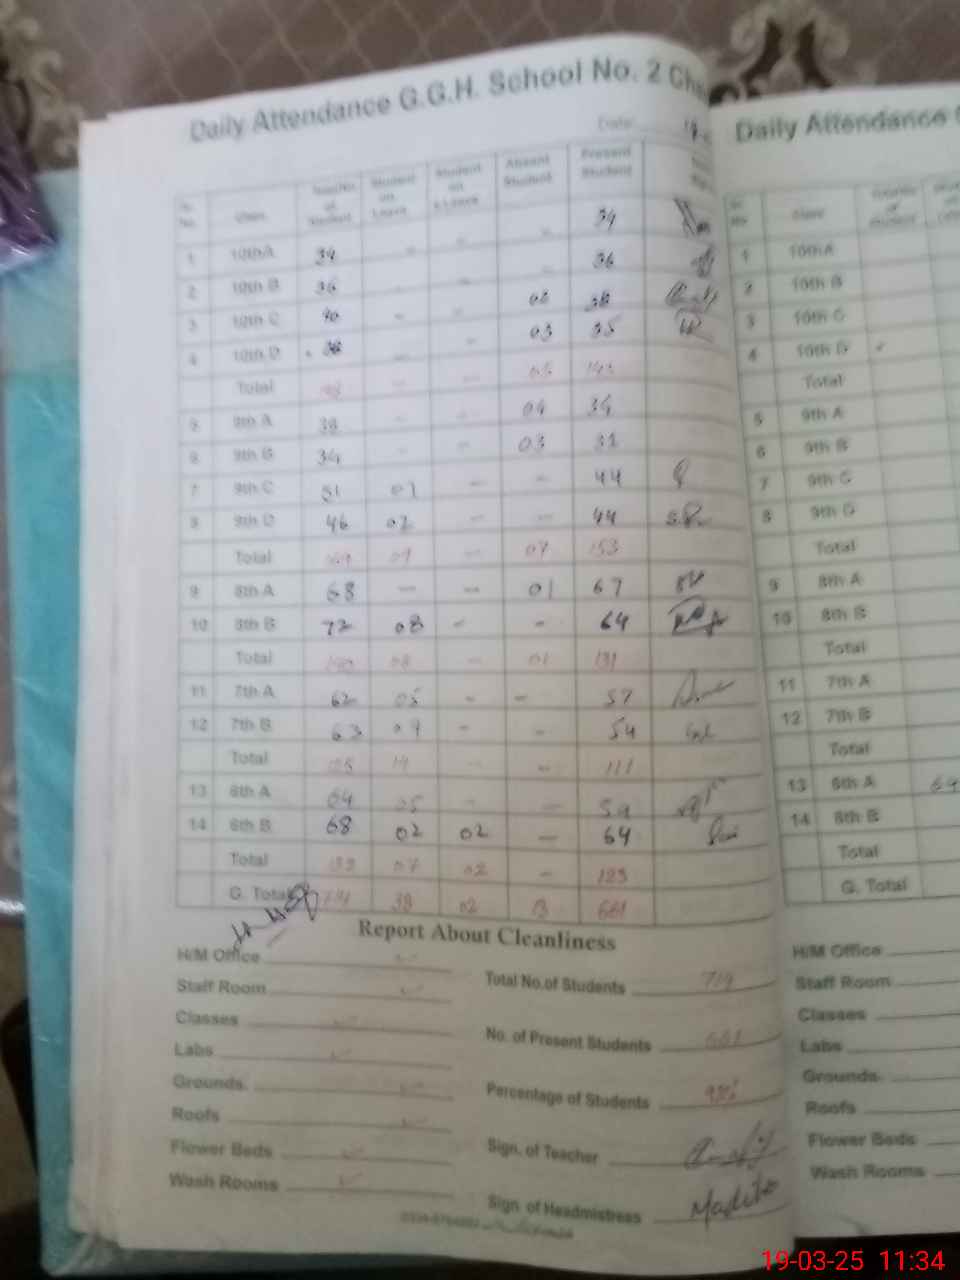 Daily Attendance G.G.H. School No. 2
Date:
Sr. No. Class Number of Student Student on Leave Student on s Leave Absent Student Present Student
1 10th A 34 - - - 34
2 10th B 36 - - - 36
3 10th C 40 - - 02 38
4 10th D 38 - - 03 35
Total - - 05
5 9th A 38 - - 04 34
6 9th B 34 - - 03 31
7 9th C 51 07 - - 44
8 9th D 46 02 - - 44
Total - 07 153
9 8th A 68 - - 01 67
10 8th B 72 08 - - 64
Total 140 08 - 01 131
11 7th A 62 05 - - 57
12 7th B 63 09 - - 54
Total 125 14 - - 111
13 6th A 64 05 - - 59
14 6th B 68 02 02 - 64
Total 132 07 02 - 123
G. Total 38 02 13 661
Report About Cleanliness
H/M Office ✓
Staff Room ✓
Classes ✓
Labs ✓
Grounds. ✓
Roofs ✓
Flower Beds ✓
Wash Rooms ✓
Total No.of Students 714
No. of Present Students 661
Percentage of Students
Sign. of Teacher
Sign. of Headmistress
Daily Attendance
Sr. No. Class Number of Student
1 10th A
2 10th B
3 10th C
4 10th D
Total
5 9th A
6 9th B
7 9th C
8 9th D
Total
9 8th A
10 8th B
Total
11 7th A
12 7th B
Total
13 6th A 64
14 6th B
Total
G. Total
H/M Office
Staff Room
Classes
Labs
Grounds.
Roofs
Flower Beds
Wash Rooms
19-03-25 11:34